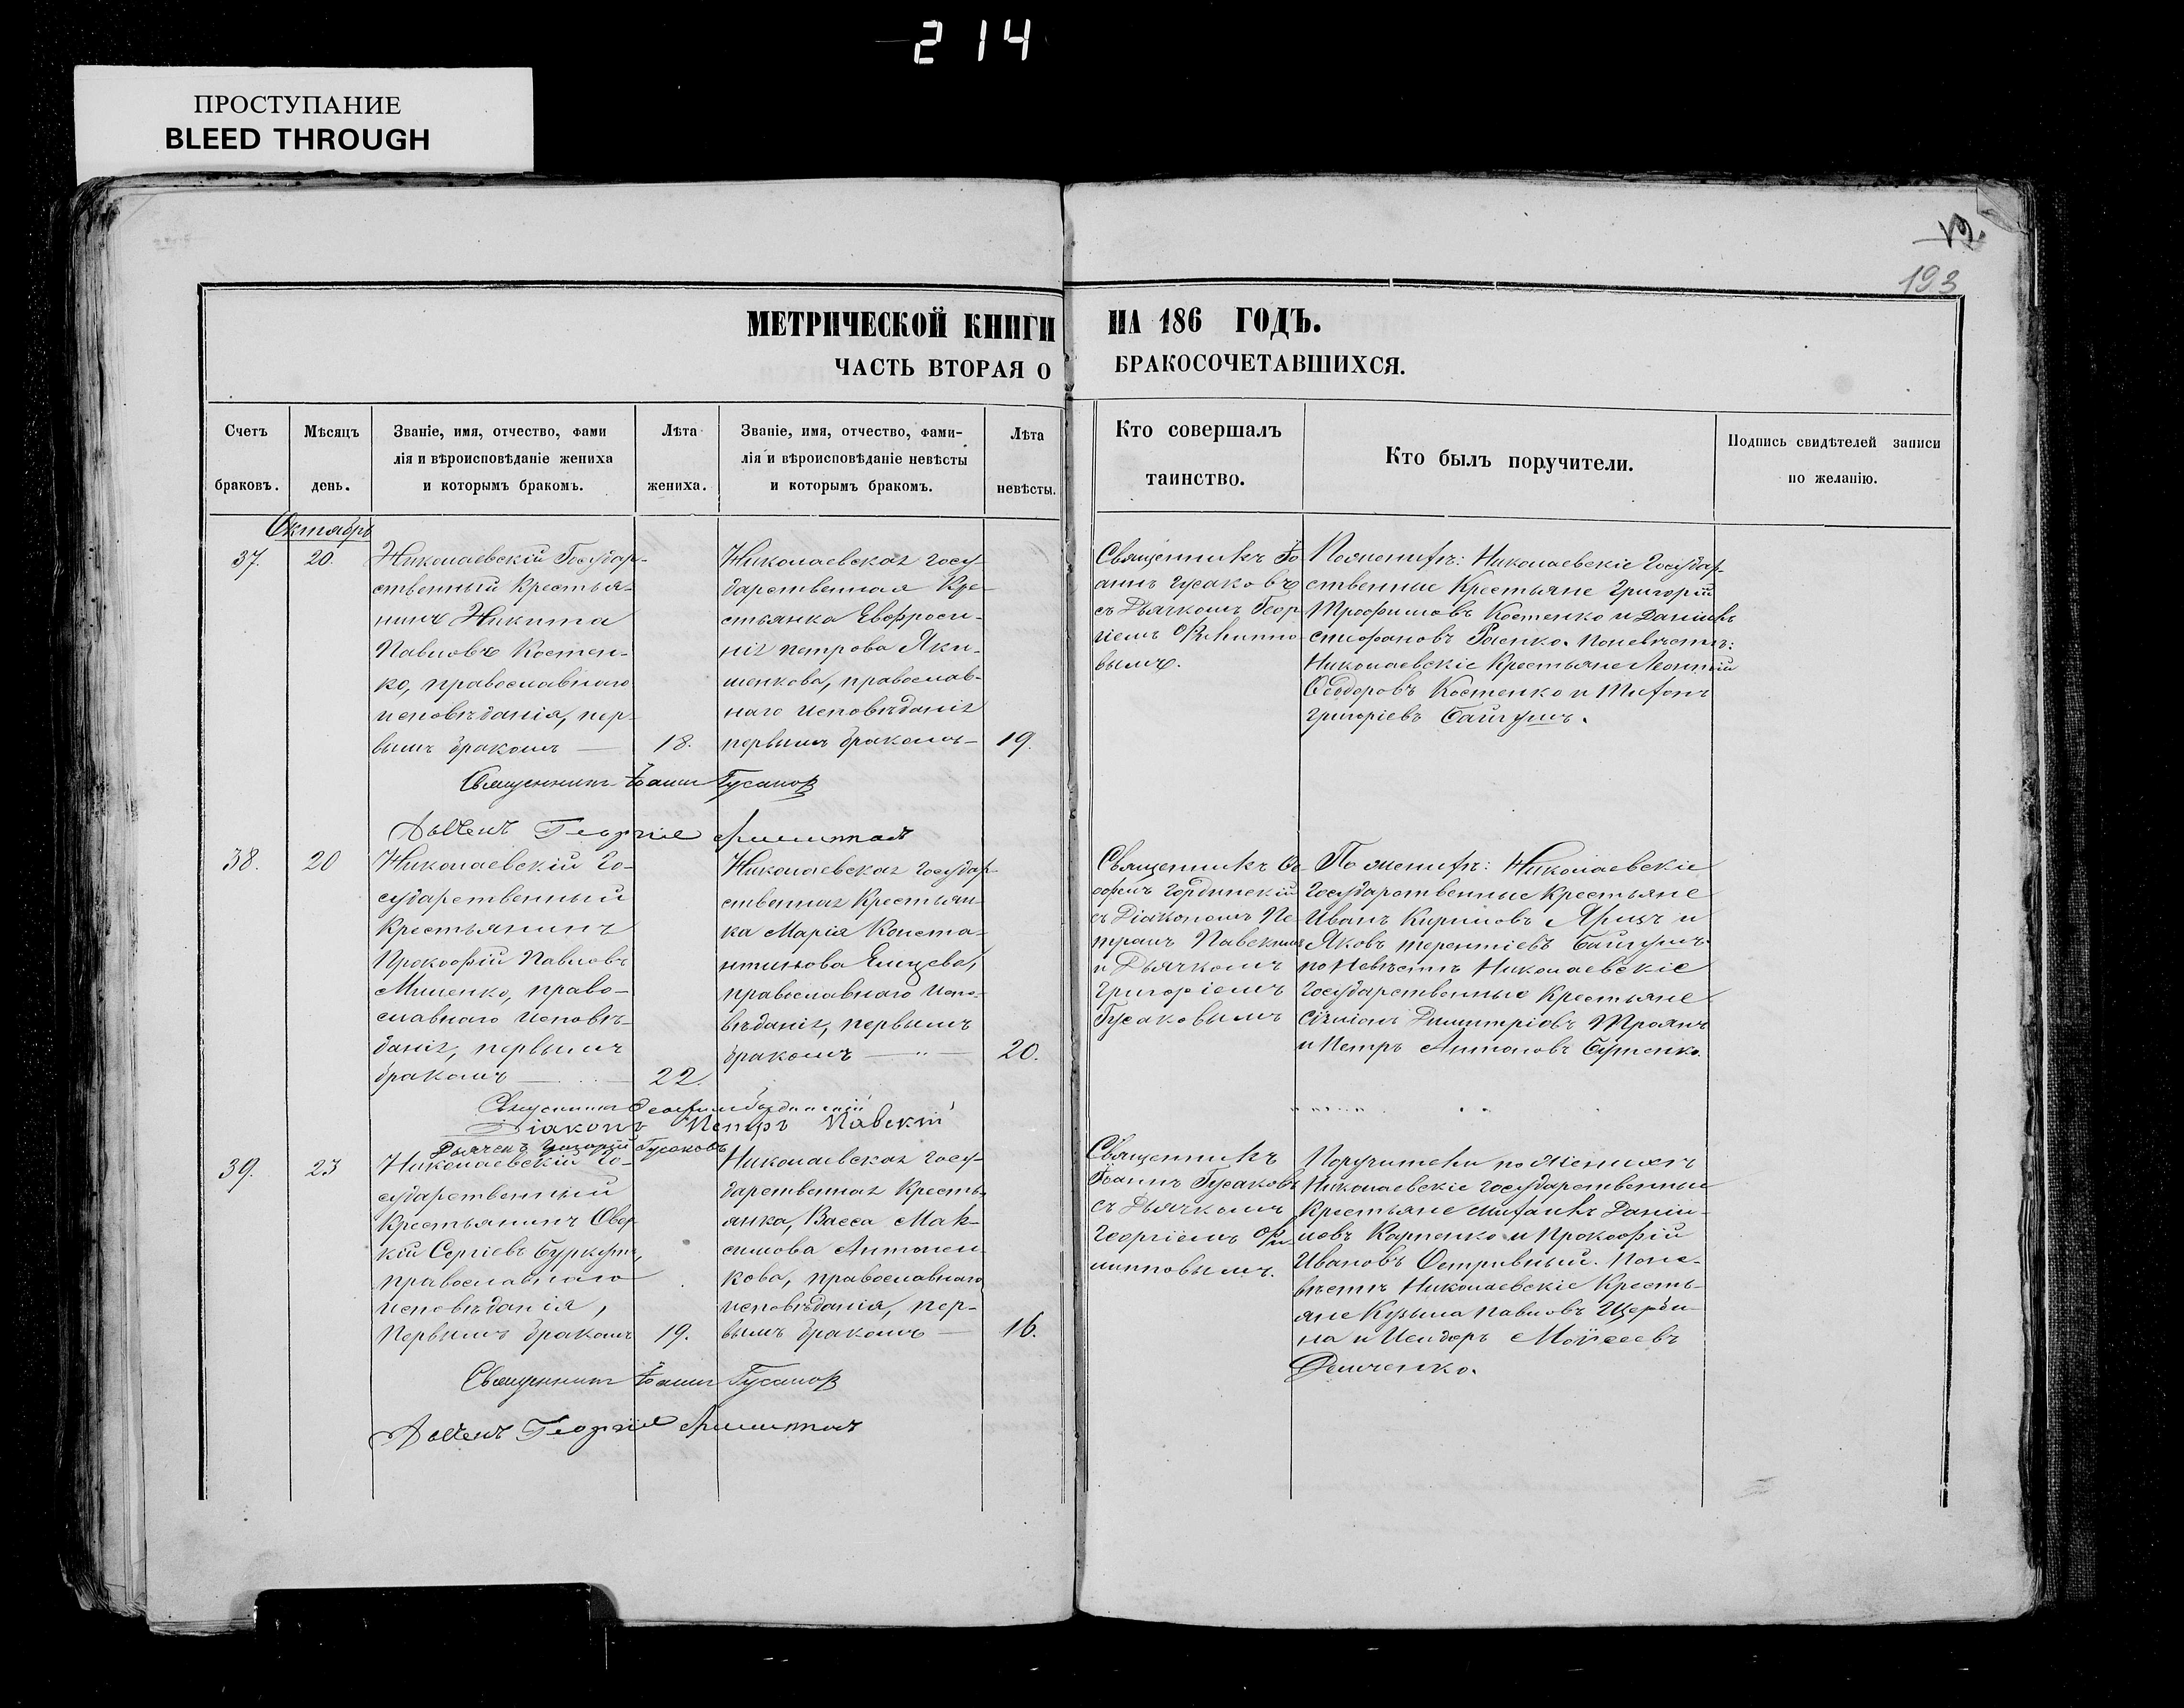 214
ПРОСТУПАНИЕ
BLEED THROUGH
193
МЕТРИЧЕСКОЙ КНИГИ НА 186 ГОДЪ.
ЧАСТЬ ВТОРАЯ О БРАКОСОЧЕТАВШИХСЯ.
Счетъ браковъ.
Мѣсяцъ день.
Званіе, имя, отчество, фами
лія и вѣроисповѣданіе жениха
и которымъ бракомъ.
Лѣта жениха.
Званіе, имя, отчество, фами-
лія и вѣроисповѣданіе невѣсты
и которымъ бракомъ.
Лѣта невѣсты.
Кто совершалъ
таинство.
Кто былъ поручители.
Подпись свидѣтелей записи
по желанію.
Октябрь
37.
20.
Николаевскій Государ-
ственный Крестья-
нинъ Никита
Павловъ Костен-
ко, православнаго
исповѣданія, пер-
вымъ бракомъ —
18.
Николаевская госу-
дарственная Кре-
стьянка Евфроси-
нія Петрова Яки-
менкова, православ-
наго исповѣданія
первымъ бракомъ —
19.
Священникъ Іо
аннъ Гусаковъ
съ Дьячкомъ Геор
гіемъ Филиппо-
вымъ.
По женихѣ: Николаевскіе Государ-
ственные Крестьяне Григорій
Трофимовъ Костенко и Даніилъ
Стефановъ Раенко. По невѣстѣ:
Николаевскіе Крестьяне Леонтій
Ѳеодоровъ Костенко и
Григоріевъ Байгушъ.
Священникъ Іоаннъ Гусаковъ
Дьячекъ Георгіе Филипповъ
38.
20
Николаевскій Го-
сударственный
Крестьянинъ
Прокофій Павловъ
Мищенко, право-
славнаго исповѣ-
данія, первымъ
бракомъ —
22.
Николаевская государ-
ственная Крестьян
ка Марія Конста-
нтинова Елицева,
православнаго испо-
вѣданія, первымъ
бракомъ —
20.
Священникъ Ѳе
офилъ Гординскій
съ Діакономъ Пе-
тромъ Павскимъ
и Дьячкомъ
Григоріемъ
Гусаковымъ
По женихѣ: Николаевскіе
Государственные Крестьяне
Иванъ Кириловъ и
Яковъ Терентіевъ Байгушъ
по Невѣстѣ Николаевскіе
Государственные Крестьяне
Димитріовъ Троянъ
и Петръ Антоновъ
Священникъ Ѳеофилъ Гординскій
Діаконъ Петръ Павскій
Дьячекъ Григорій Гусаковъ
39.
23
Николаевскій Го-
сударственный
Крестьянинъ Овер
кій Сергіевъ Буркутъ,
православнаго
исповѣданія,
Первымъ бракомъ
19.
Николаевская госу-
дарственная Кресть-
янка, Васса Мак-
симова Антонен
кова, православнаго
исповѣданія, пер-
вымъ бракомъ —
16.
Священникъ
Іоаннъ Гусаковъ
съ Дьячкомъ
Георгіемъ Фи-
липповымъ.
Поручители по Женихѣ
Николаевскіе государственные
Крестьяне Михаилъ Даніи-
ловъ Карпенко и Прокофій
Ивановъ Остривный. Поне-
вѣстѣ Николаевскіе Кресть-
яне Кузьма Павловъ Щерби-
на и Исидоръ Моѵсеевъ
Демченко.
Священникъ Іоаннъ Гусаковъ
Дьячекъ Георгіе Филипповъ